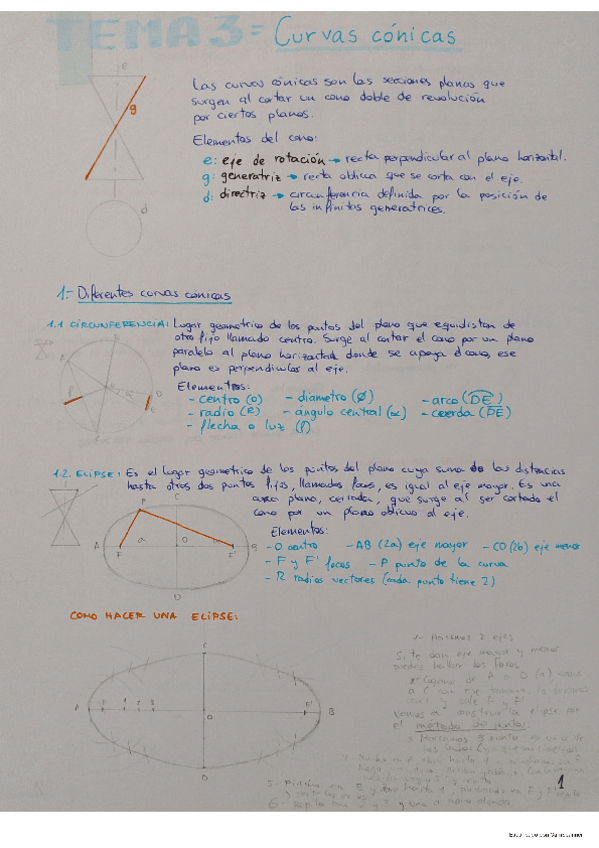 TEMA 3 = Curvas cónicas
e
g
d
Las curvas cónicas son las secciones planas que
surgen al cortar un cono doble de revolución
por ciertos planos.
Elementos del cono:
e: eje de rotación → recta perpendicular al plano horizontal.
g: generatriz → recta oblicua que se corta con el eje.
d: directriz → circunferencia definida por la posición de
las infinitas generatrices.
1.- Diferentes curvas cónicas
1.1 CIRCUNFERENCIA: Lugar geometrico de los puntos del plano que equidistan de
otro fijo llamado centro. Surge al cortar el cono por un plano
paralelo al plano horizontal donde se apoya el cono, ese
plano es perpendicular al eje.
Elementos:
- centro (o) - diametro (Ø) - arco (DE)
- radio (R) - ángulo central (α) - cuerda (DE)
- flecha o luz (f)
1.2. ELIPSE: Es el lugar geometrico de los puntos del plano cuya suma de las distancias
hasta otros dos puntos fijos, llamados focos, es igual al eje mayor. Es una
curva plana, cerrada, que surge al ser cortado el
cono por un plano oblicuo al eje.
P C
A F a O F' B
D
Elementos:
- O centro - AB (2a) eje mayor - CD (2b) eje menor
- F y F' focos - P punto de la curva
- R radios vectores (cada punto tiene 2)
COMO HACER UNA ELIPSE:
C
A F 1 2 3 O F' B
D
1- Hacemos 2 ejes
Si te dan eje mayor y menor
puedes hallar los focos
de A a O (a)
a C
y sale F y F'
construir la elipse por
el método de puntos:
1